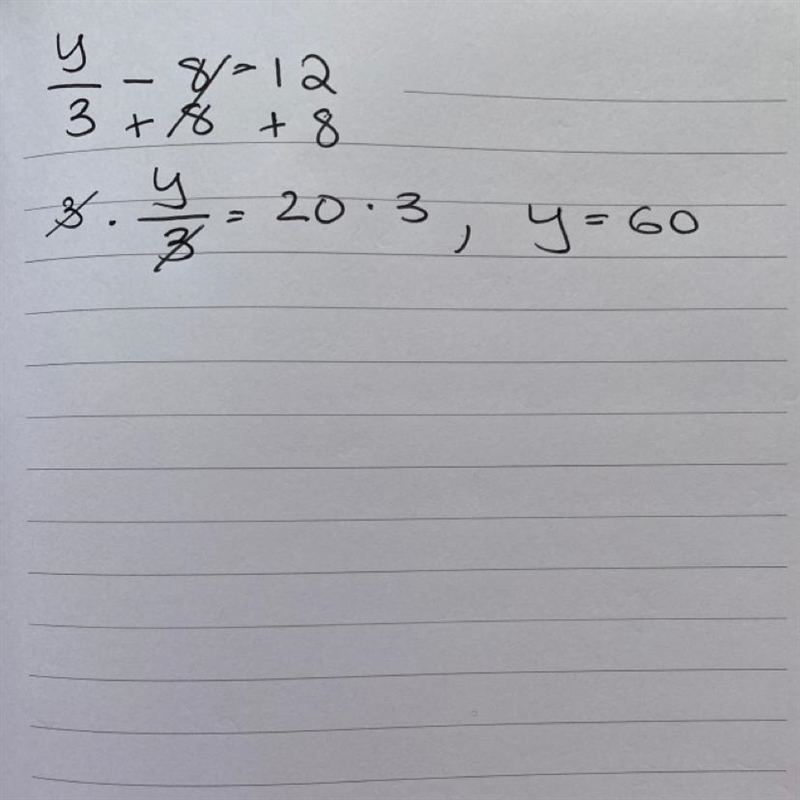 y/3 - 8 = 12
+ 8 + 8
3 · y/3 = 20 · 3, y = 60